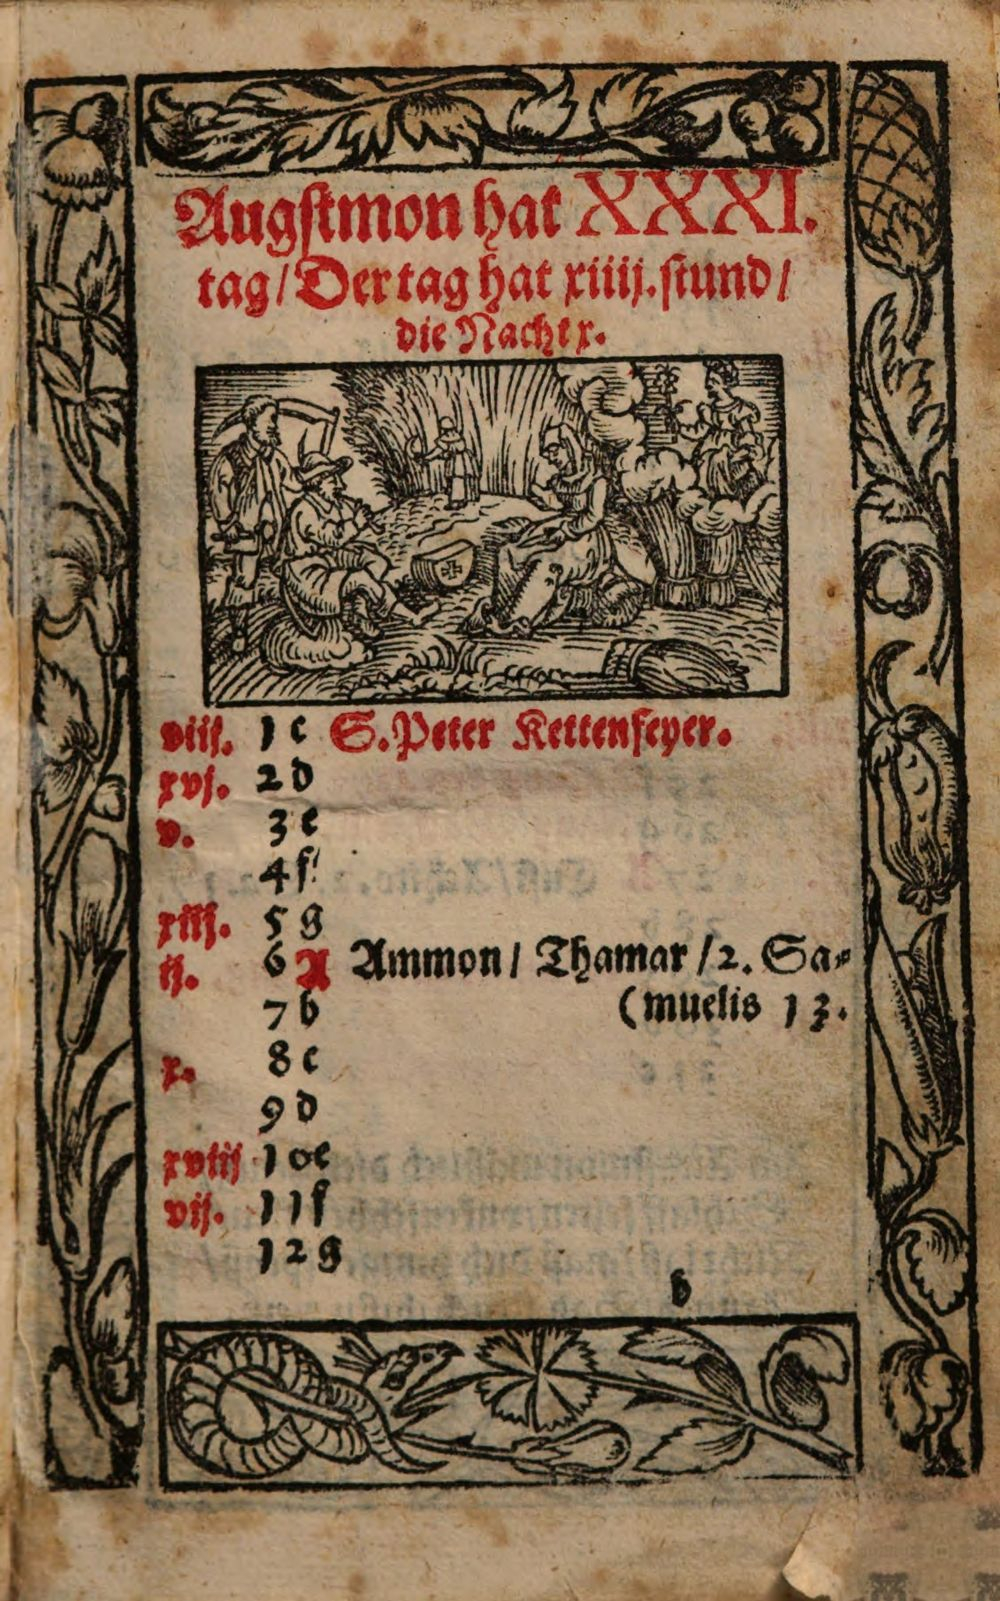 Augſtmon hat XXXI.
tag/Der tag hat xiiij.ſtund/
die Nacht x.
viij. 1 c S.Peter Kettenfeyer.
xvj. 2 d
v. 3 e
4 f
xiij. 5 g
ij. 6 A Ammon/ Thamar /2. Sa⸗
7 b (muelis 13.
x. 8 c
9 d
xviij 10 e
vij. 11 f
12 g
b